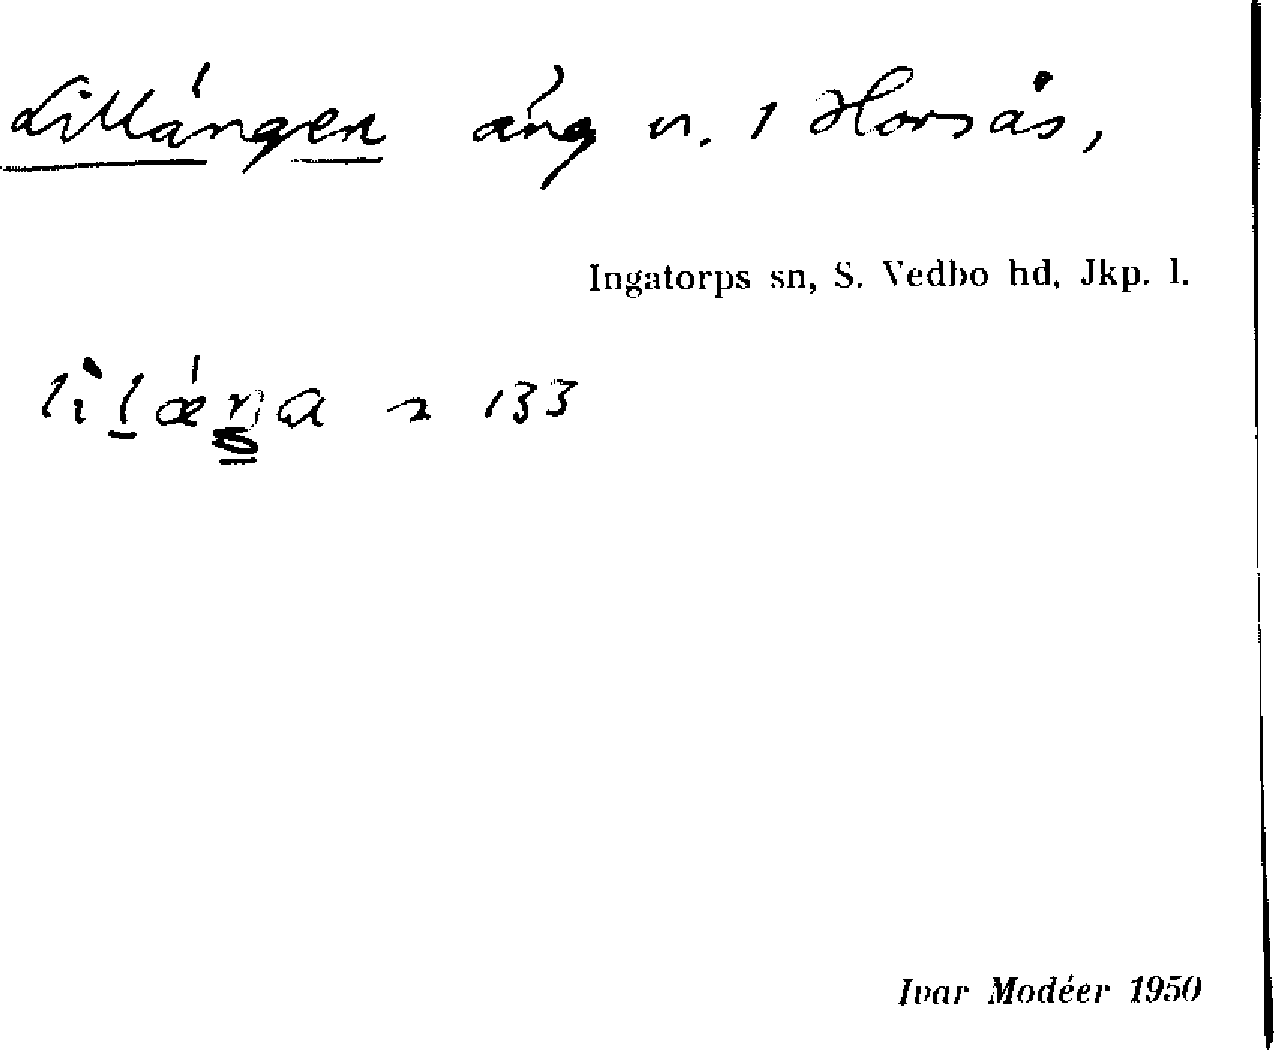 Lillängen äng n. 1 Horsås,
Ingatorps sn, S. Vedbo hd, Jkp. l.
133
Ivar Modéer 1950